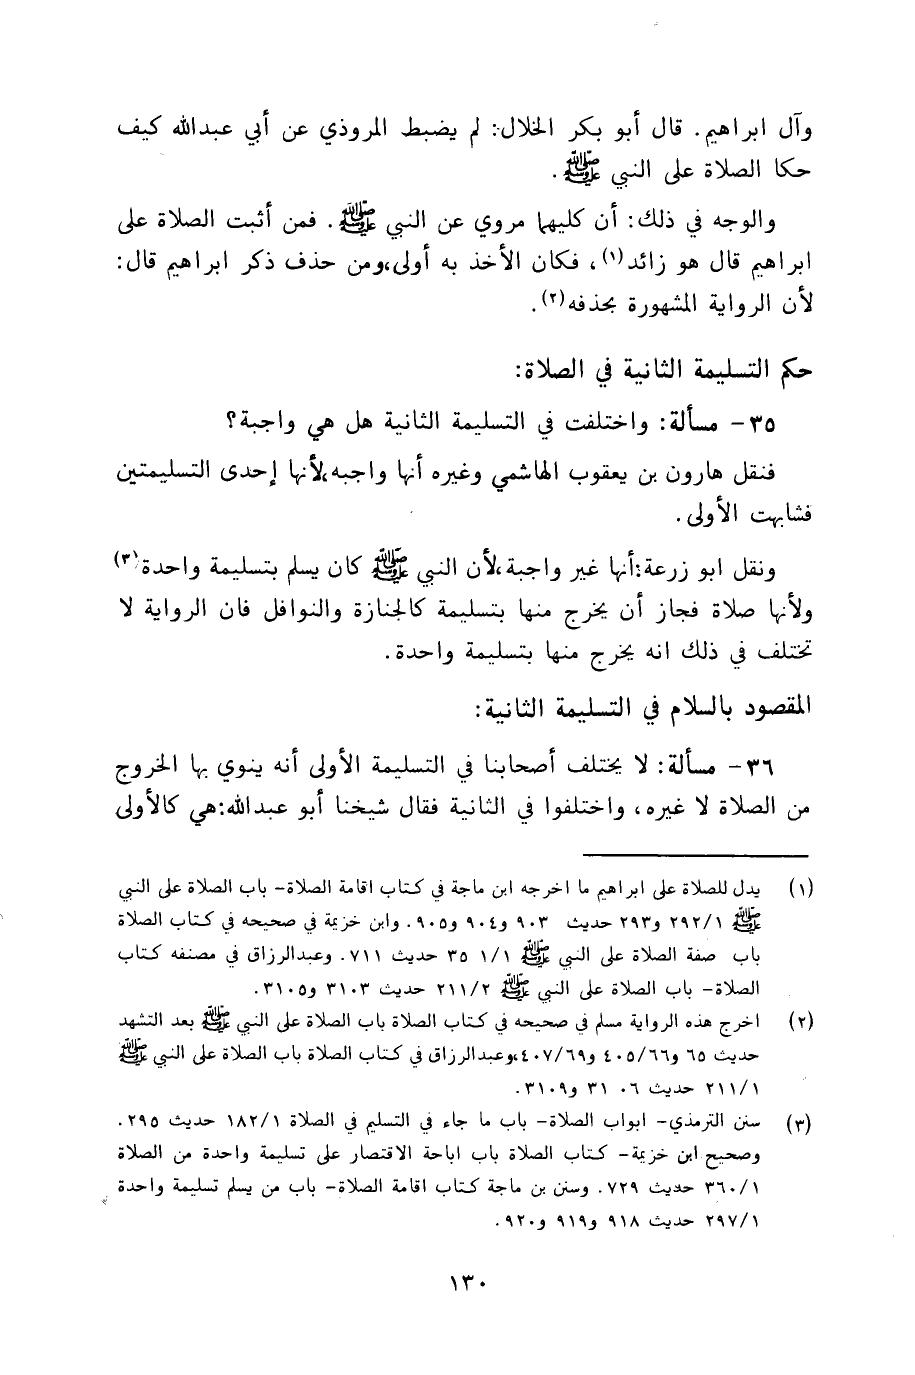 وآل ابراهيم. قال أبو بكر الخلال: لم يضبط المروذي عن أبي عبدالله كيف
حكا الصلاة على النبي ﷺ.
والوجه في ذلك: أن كليهما مروي عن النبي ﷺ. فمن أثبت الصلاة على
ابراهيم قال هو زائد(١)، فكان الأخذ به أولى،ومن حذف ذكر ابراهيم قال:
لأن الرواية المشهورة بحذفه(٢).
حكم التسليمة الثانية في الصلاة:
٣٥- مسألة: واختلفت في التسليمة الثانية هل هي واجبة؟
فنقل هارون بن يعقوب الهاشمي وغيره أنها واجبه،لأنها إحدى التسليمتين
فشابهت الأولى.
ونقل ابو زرعة:أنها غير واجبة،لأن النبي ﷺ كان يسلم بتسليمة واحدة(٣)
ولأنها صلاة فجاز أن يخرج منها بتسليمة كالجنازة والنوافل فان الرواية لا
تختلف في ذلك انه يخرج منها بتسليمة واحدة.
المقصود بالسلام في التسليمة الثانية:
٣٦- مسألة: لا يختلف أصحابنا في التسليمة الأولى أنه ينوي بها الخروج
من الصلاة لا غيره، واختلفوا في الثانية فقال شيخنا أبو عبدالله:هي كالأولى
(١) يدل للصلاة على ابراهيم ما اخرجه ابن ماجة في كتاب اقامة الصلاة- باب الصلاة على النبي
ﷺ ٢٩٢/١ و٢٩٣ حديث ٩٠٣ و٩٠٤ و٩٠٥. وابن خزيمة في صحيحه في كتاب الصلاة
باب صفة الصلاة على النبي ﷺ ١/١ ٣٥ حديث ٧١١. وعبدالرزاق في مصنفه كتاب
الصلاة- باب الصلاة على النبي ﷺ ٢١١/٢ حديث ٣١٠٣ و٣١٠٥.
(٢) اخرج هذه الرواية مسلم في صحيحه في كتاب الصلاة باب الصلاة على النبي ﷺ بعد التشهد
حديث ٦٥ و٤٠٥/٦٦ و٤٠٧/٦٩،وعبدالرزاق في كتاب الصلاة باب الصلاة على النبي ﷺ
٢١١/١ حديث ٠٦ ٣١ و٣١٠٩.
(٣) سنن الترمذي- ابواب الصلاة- باب ما جاء في التسليم في الصلاة ١٨٢/١ حديث ٢٩٥.
وصحيح ابن خزيمة- كتاب الصلاة باب اباحة الاقتصار على تسليمة واحدة من الصلاة
٣٦٠/١ حديث ٧٢٩. وسنن بن ماجة كتاب اقامة الصلاة- باب من يسلم تسليمة واحدة
٢٩٧/١ حديث ٩١٨ و٩١٩ و٩٢٠.
١٣٠